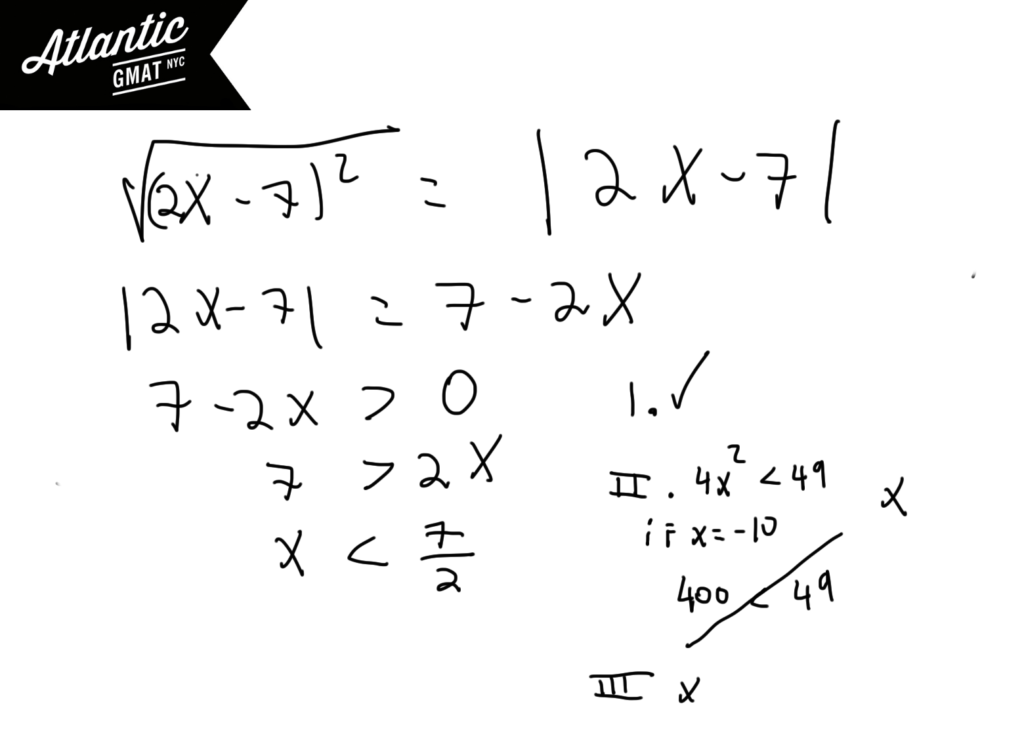 Atlantic
GMAT NYC
√(2x - 7)² = |2x - 7|
|2x - 7| = 7 - 2x
7 - 2x > 0
7 > 2x
x < 7/2
1. ✓
II. 4x² < 49 x
if x = -10
400 < 49
III x